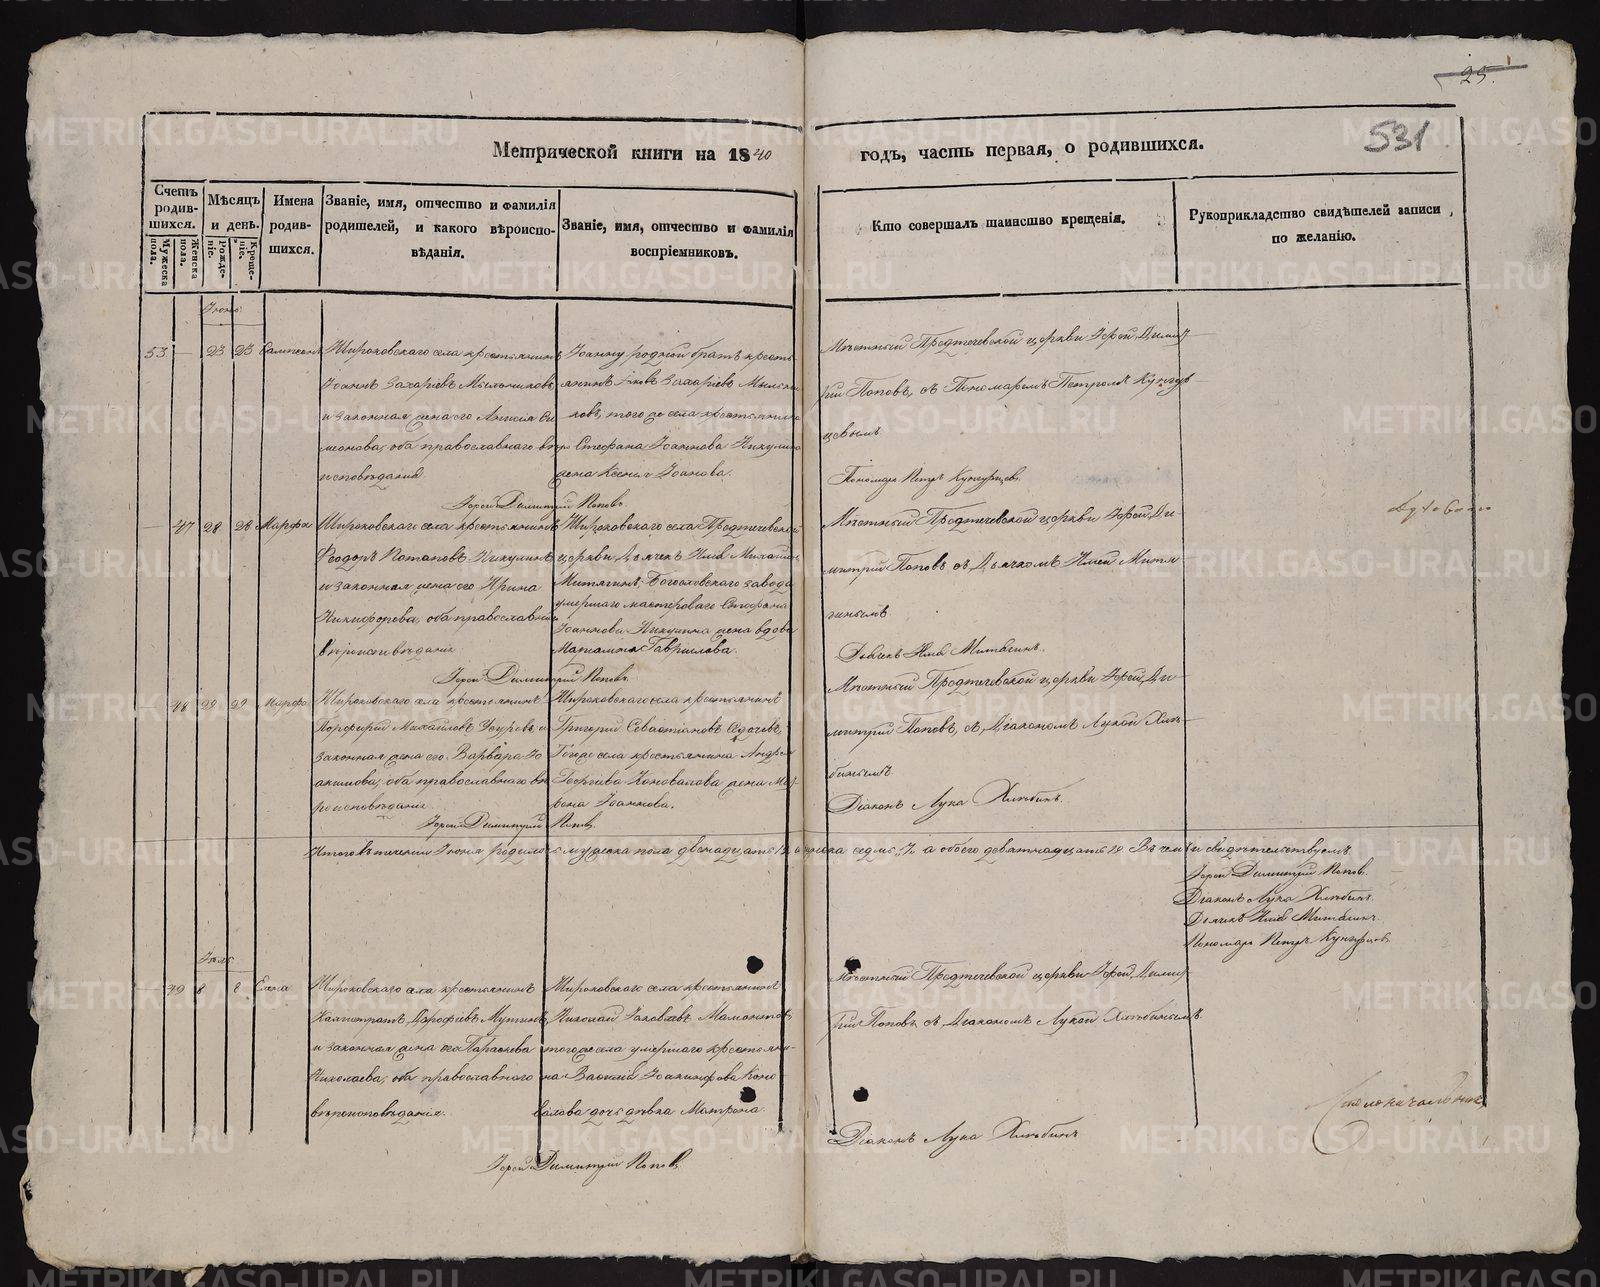 25.
531
Метрической книги на 1840
годъ, часть первая, о родившихся.
Счетъ родив-шихся.
Мужеска пола.
Женска пола.
Мѣсяцъ и день.
Рожде-ніе.
Креще-ніе.
Имена родив-шихся.
Званіе, имя, отчество и фамилія родителей, и какого вѣроиспо-вѣданія.
Званіе, имя, отчество и фамилія воспріемниковъ.
Кто совершалъ таинство крещенія.
Рукоприкладство свидѣтелей записи по желанію.
Іюнь
53 — 23 23
Широковскаго села крестьянинъ
Іоаннъ Захаріевъ Мыльниковъ
и законная жена его Анисія Си
монова, оба православнаго вѣ
исповѣданія
Іоанну родной братъ кресть
янинъ Іаковъ Захаріевъ Мыльни
ковъ, того же села крестьянина
Стефана Іоаннова Никулина
жена Ксенія Іоанова.
Іерей Димитрій Поповъ
Мѣстный Предтечевской церкви Іерей Димит
рій Поповъ, съ Пономаремъ Петромъ Кунгур
цевымъ
Пономарь Петръ Кунгурцевъ
— 47 28 28 Марфа
Широковскаго села крестьянинъ
Феодоръ Потаповъ Никулинъ
и законная жена его Ирина
Никифорова, оба православнаго
вѣроисповѣданія
Широковскаго села Предтечевской
церкви Дьячекъ Илія Михаиловъ
Митягинъ, Богословскаго завода
умершаго мастероваго Стефана
Іоаннова Никулина жена вдова
Гавриилова.
Іерей Димитрій Поповъ
Мѣстный Предтечевской церкви Іерей Ди-
митрій Поповъ съ Дьячкомъ Иліей Митя
гинымъ
Дьячекъ Илія Митягинъ.
— 48 29 29 Марфа
Широковскаго села крестьянинъ
Порфирій Михайловъ и
законная жена его Варвара Іо
акимова, оба православнаго вѣ
роисповѣданія
Широковскаго села крестьянинъ
Григорій Севастіановъ
Того же села крестьянина Андрея
Георгіева Коновалова жена Мат
рона Іоаннова.
Іерей Димитрій Поповъ
Мѣстный Предтечевской церкви Іерей Ди-
митрій Поповъ, съ Діакономъ Лукой Хлѣ-
бинымъ
Діаконъ Лука Хлѣбинъ.
Итого въ теченіи Іюня родилось мужеска пола двенадцать 12, а женска седмь 7, а обоего девятнадцать 19. Въ чемъ и свидѣтельствуемъ
Іерей Димитрій Поповъ.
Діаконъ Лука Хлѣбинъ.
Дьячекъ Илія Митягинъ.
Пономарь Петръ Кунгурцевъ
Іюль
— 49 8 8 Елена
Широковскаго села крестьянинъ
Каллистратъ Дорофѣевъ
и законная жена его Параскева
Николаева, оба православнаго
вѣроисповѣданія.
Широковскаго села крестьянинъ
Николай Іаковлевъ Мамонтовъ,
того же села умершаго крестьяни-
на Василія Іоакинфова Коно
валова дочь дѣвка Матрона.
Іерей Димитрій Поповъ
Мѣстный Предтечевской церкви Іерей Димит
рій Поповъ съ Діакономъ Лукой Хлѣбинымъ.
Діаконъ Лука Хлѣбинъ
Духовнаго
Столоначальникъ
METRIKI.GASO-URAL.RU